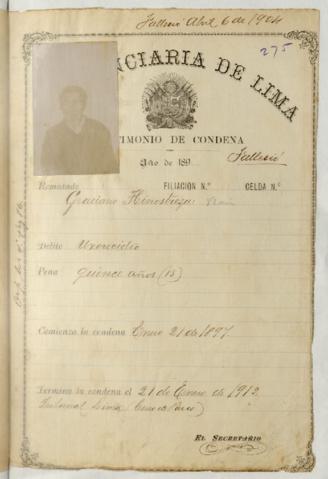 Falleció Abril 6 de 1904
275
NCIARIA DE LIMA
TIMONIO DE CONDENA
Año de 189
Falleció
Rematado
FILIACION N.º
CELDA N.º
Graciano Hinostroza
Delito Uxoricidio
Pena quince años (15)
Comienza la condena Enero 21 de 1897
Termina la condena el 21 de Enero de 1912
Tribunal Lima (Cerro de Pasco)
EL SECRETARIO